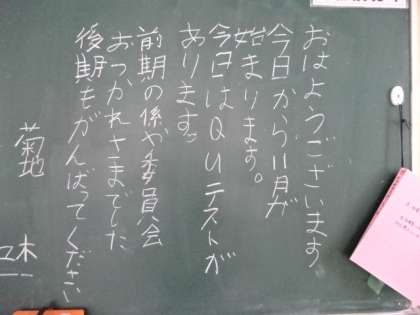 おはようございます
今日から11月が
始まります。
今日はQUテストが
あります。
前期の係や委員会
おつかれさまでした
後期もがんばってください
菊地